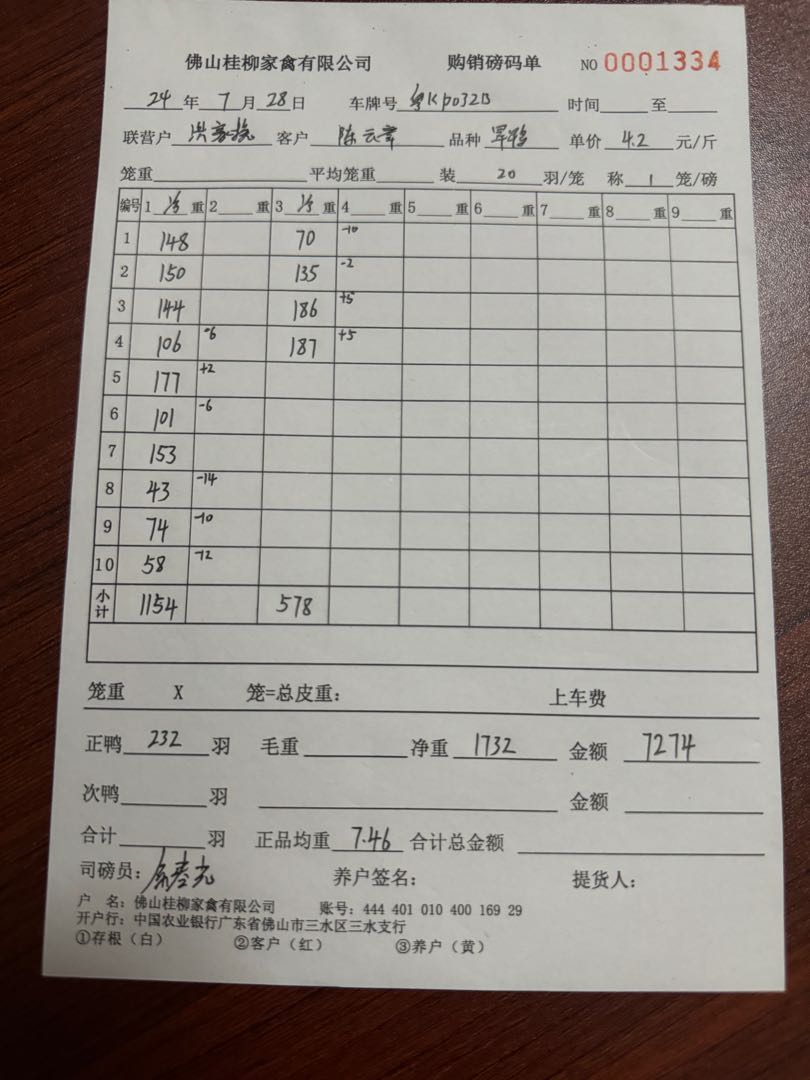 佛山桂柳家禽有限公司 购销磅码单 NO 0001334
24 年 7 月 28 日 车牌号 粤KP032B 时间 至
联营户 客户 陈云 品种 单价 4.2 元/斤
笼重 平均笼重 装 20 羽/笼 称 1 笼/磅
编号 1 净 重 2 重 3 净 重 4 重 5 重 6 重 7 重 8 重 9 重
1 148 70 -10
2 150 135 -2
3 144 186 +5
4 106 -6 187 +5
5 177 +2
6 101 -6
7 153
8 43 -14
9 74 -10
10 58 -12
小计 1154 578
笼重 X 笼=总皮重： 上车费
正鸭 232 羽 毛重 净重 1732 金额 7274
次鸭 羽 金额
合计 羽 正品均重 7.46 合计总金额
司磅员： 养户签名： 提货人：
户 名：佛山桂柳家禽有限公司 账号：444 401 010 400 169 29
开户行：中国农业银行广东省佛山市三水区三水支行
①存根（白） ②客户（红） ③养户（黄）